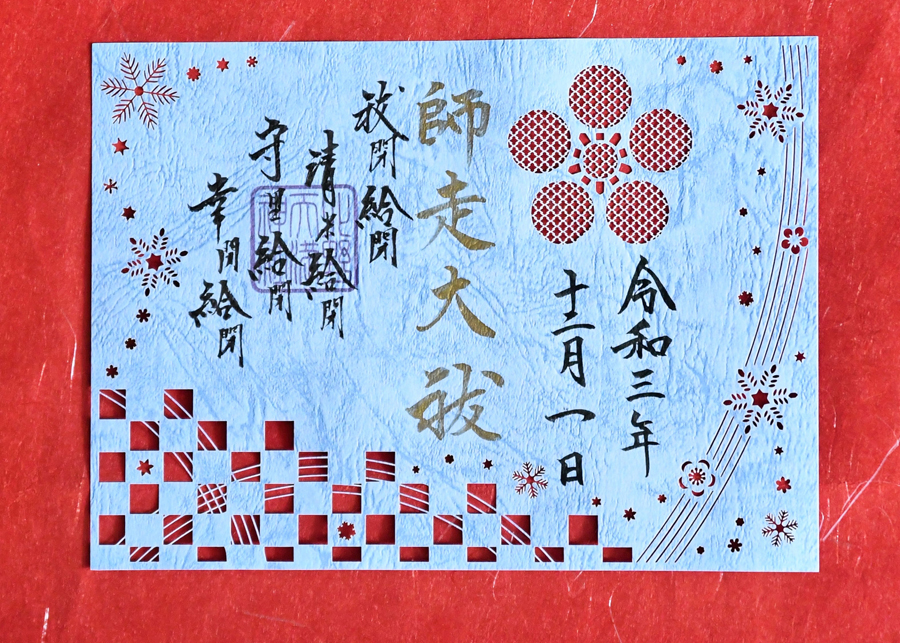 令和三年
十二月一日
師走大祓
祓閉給閉
清米給閉
守里給閉
幸閉給閉